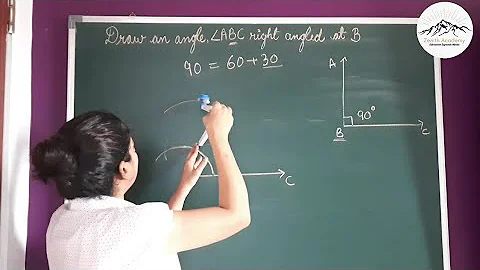 Draw an angle, ∠ABC right angled at B
90 = 60 + 30
A
90°
B
C
C
Zenith Academy
Education Beyond Marks